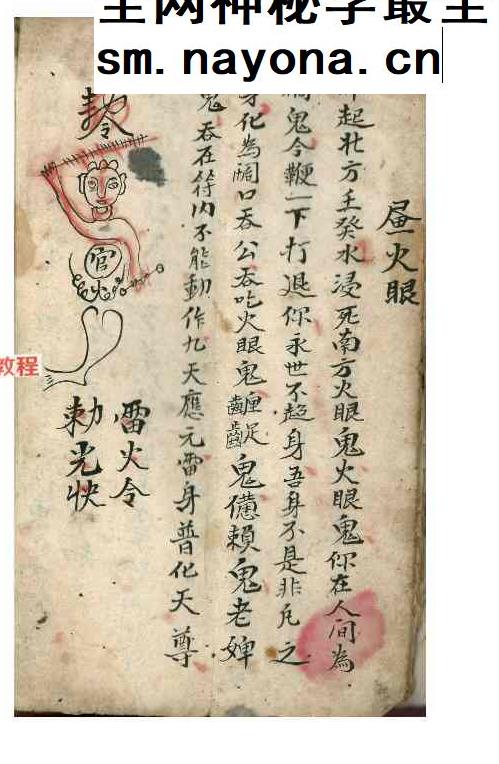 全网神秘学最全
sm.nayona.cn
昼火眼
起北方壬癸水浸死南方火眼鬼火眼鬼你在人间為
鬼令鞭一下打退你永世不超身吾身不是非凡之
化為口吞公吞吃火眼鬼鬼賴鬼老婢
鬼吞在符内不能動作九天應元雷身普化天尊
雷火令
勅光快
官
火
教程